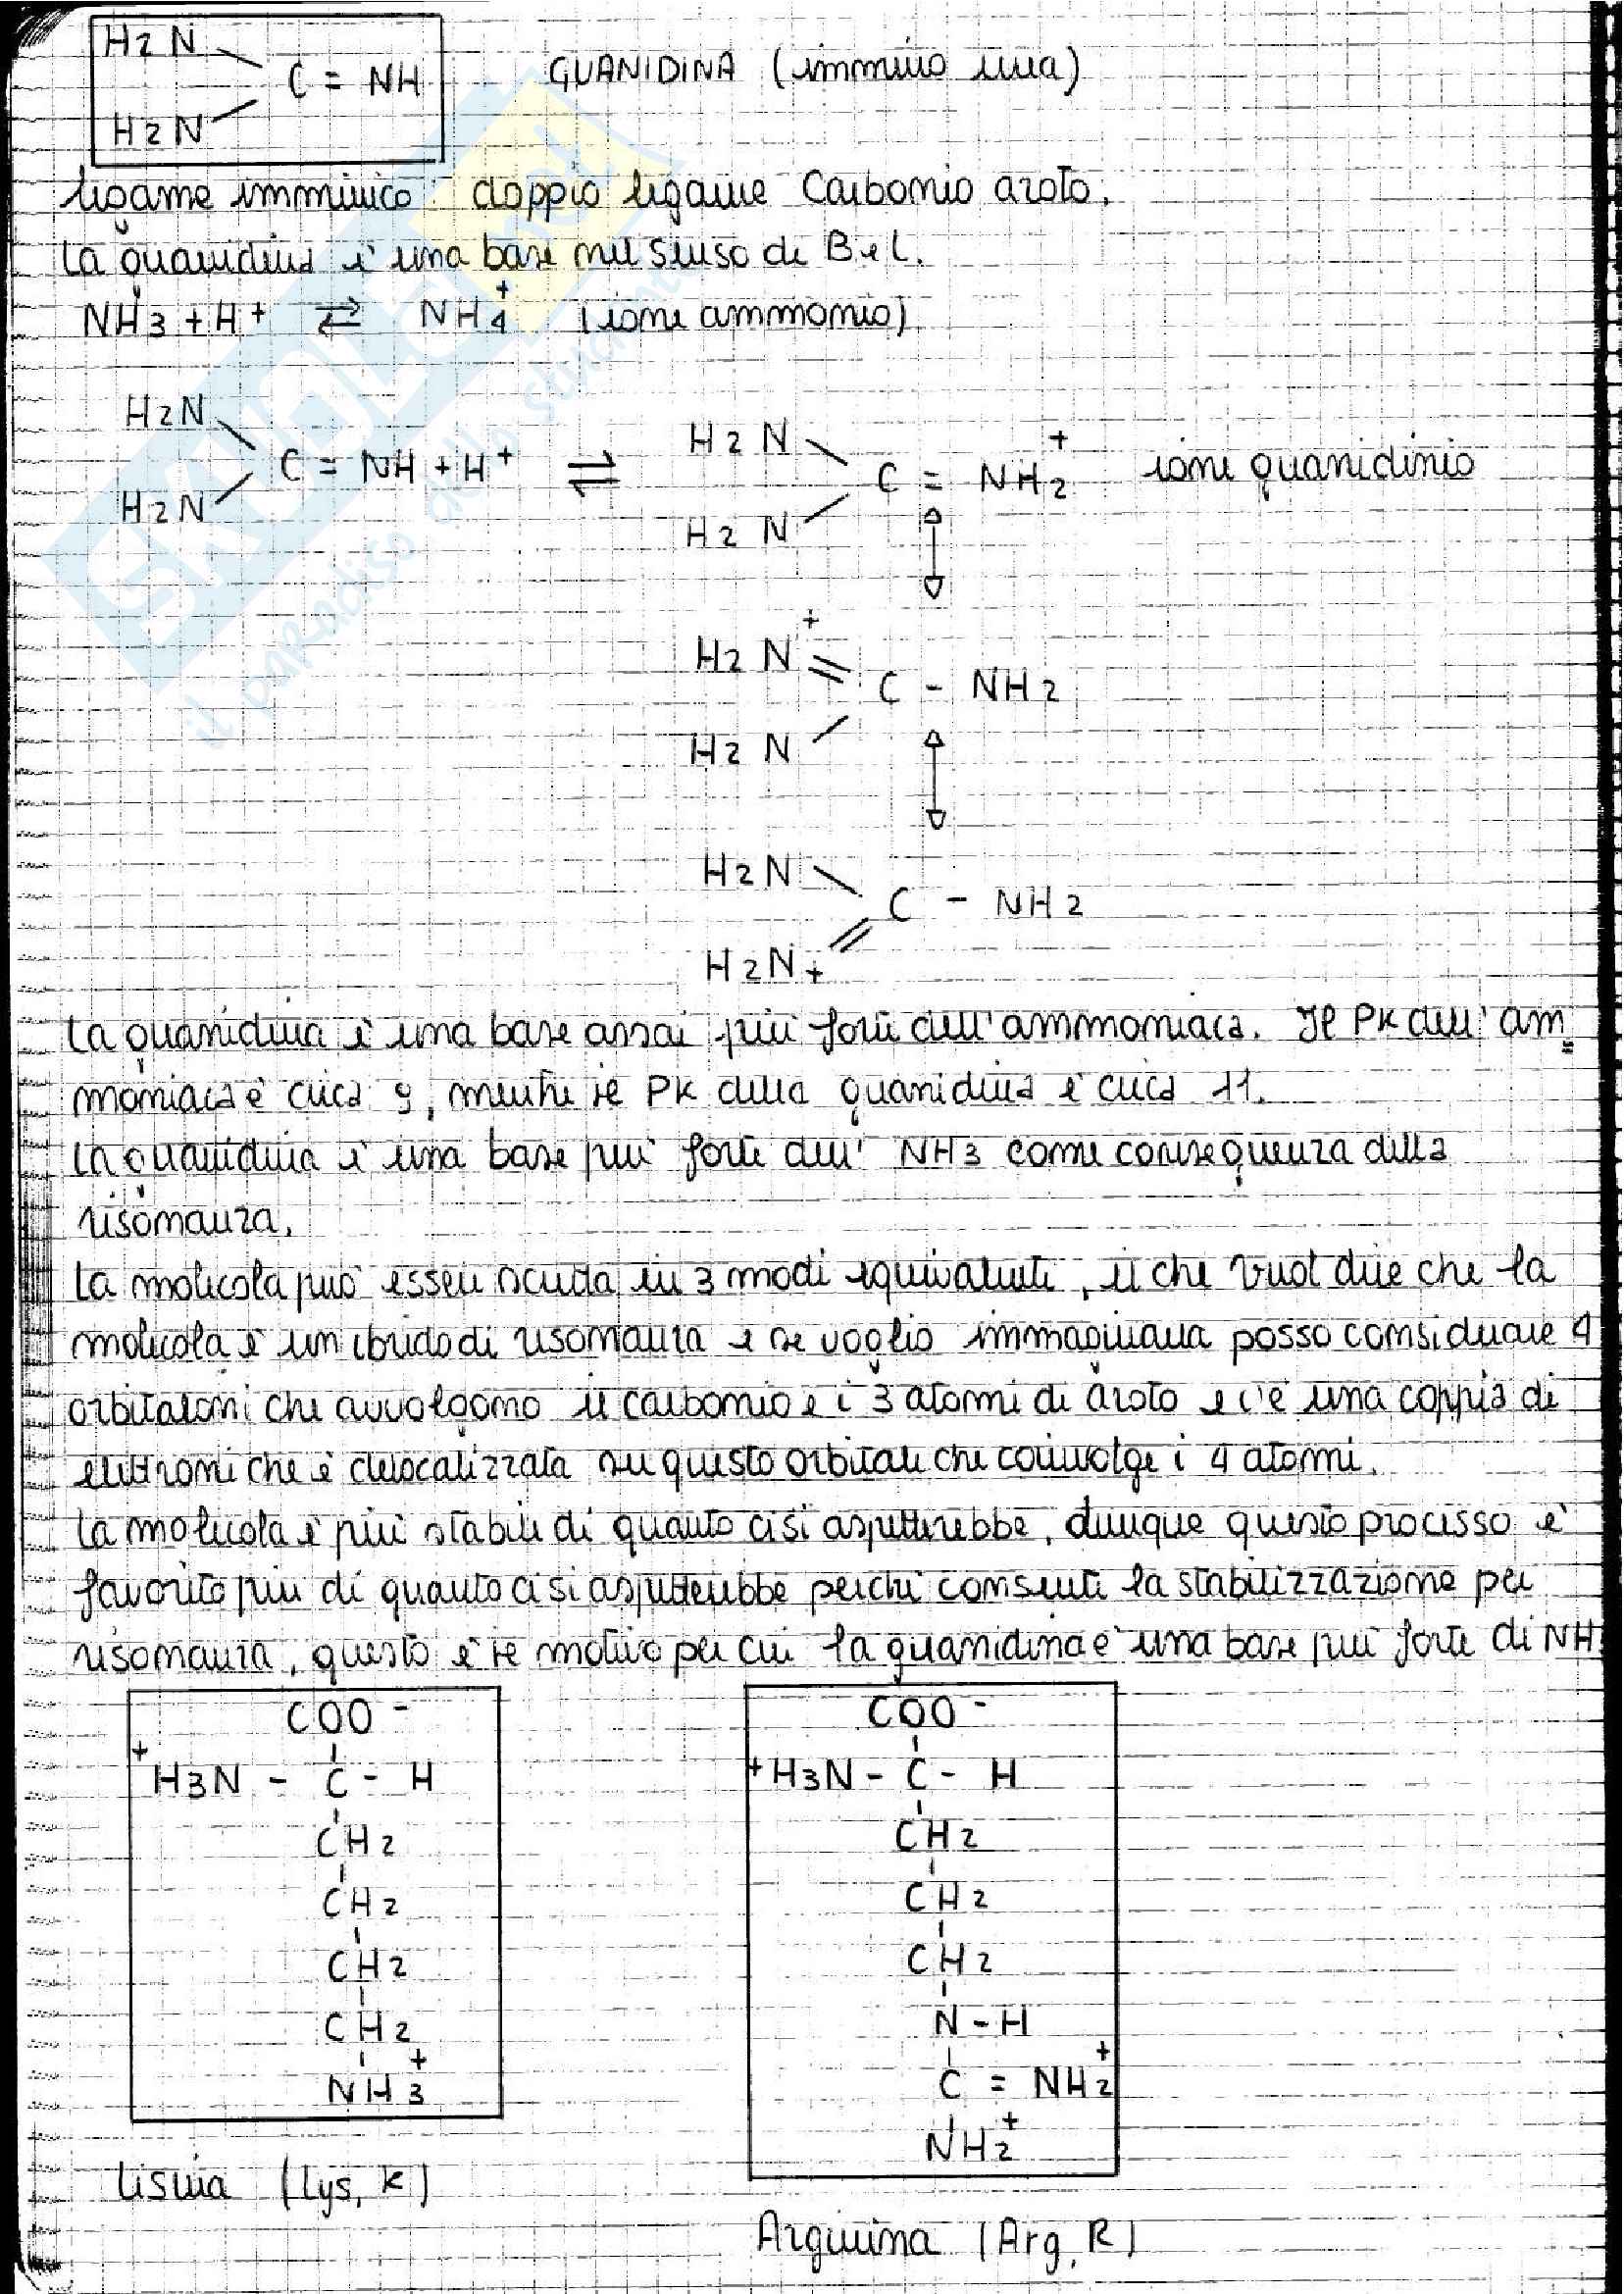 H2N
C = NH
H2N
GUANIDINA (immino urea)
legame imminico: doppio legame Carbonio azoto.
La guanidina è una base nel senso di B e L.
NH3 + H+ ⇄ NH4+ (ione ammonio)
H2N
C = NH + H+
H2N
⇌
H2N
C = NH2+
H2N
ione guanidinio
H2N+
C - NH2
H2N
H2N
C - NH2
H2N+
La guanidina è una base assai più forte dell'ammoniaca. Il PK dell'am=
moniaca è circa 9, mentre il PK della guanidina è circa 11.
La guanidina è una base più forte dell' NH3 come conseguenza della
risonanza.
La molecola può essere scritta in 3 modi equivalenti, il che vuol dire che la
molecola è un ibrido di risonanza e se voglio immaginarla posso considerare 4
orbitaloni che avvolgono il carbonio e i 3 atomi di azoto e c'è una coppia di
elettroni che è delocalizzata su questo orbitale che coinvolge i 4 atomi.
La molecola è più stabile di quanto ci si aspetterebbe, dunque questo processo è
favorito più di quanto ci si aspetterebbe perché consente la stabilizzazione per
risonanza, questo è il motivo per cui la guanidina è una base più forte di NH
COO-
+H3N - C - H
CH2
CH2
CH2
CH2
NH3+
Lisina (Lys, K)
COO-
+H3N - C - H
CH2
CH2
CH2
N - H
C = NH2+
NH2+
Arginina (Arg, R)
SKUOLA.net
il paradiso dello studente